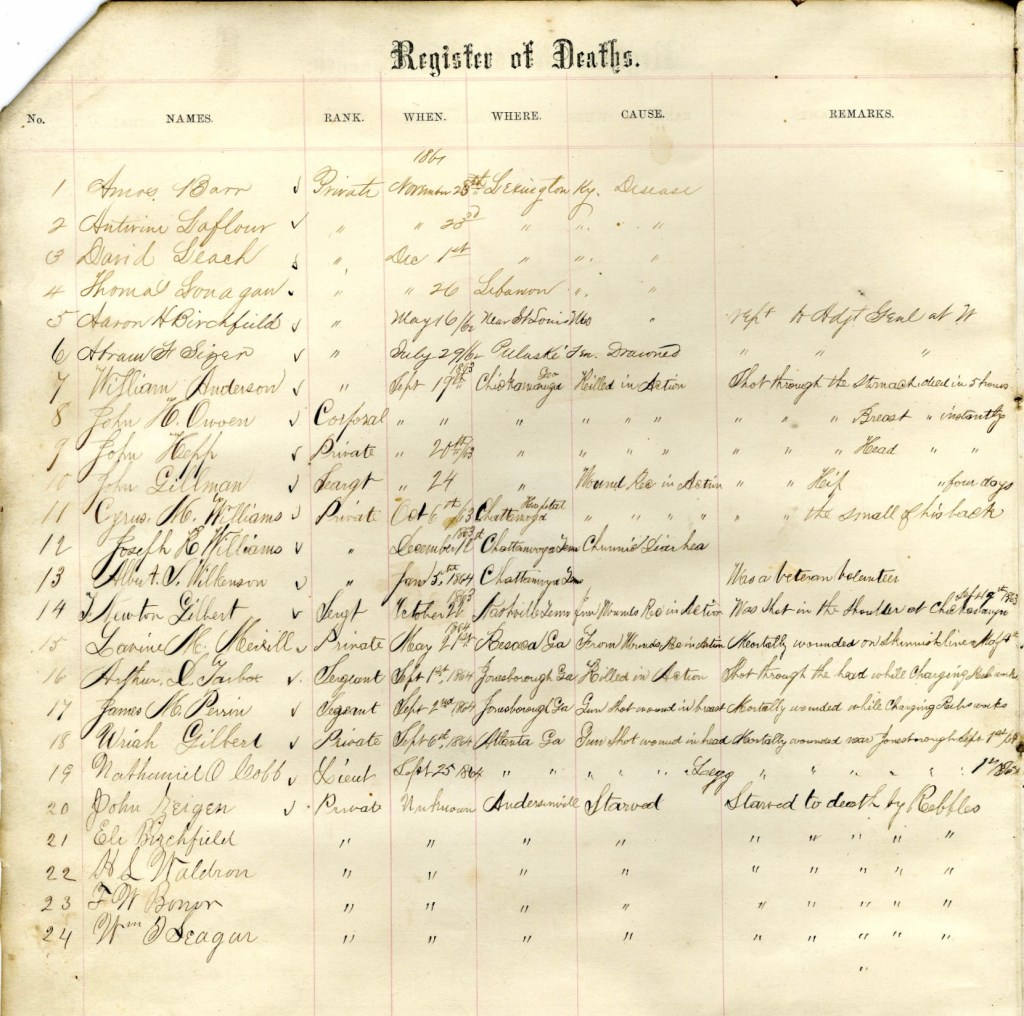 Register of Deaths.
No. NAMES. RANK. WHEN. WHERE. CAUSE. REMARKS.
1861
1 Amos Barr Private November 28th Lexington Ky. Disease
2 Antwine Laflour " " 23rd " " "
3 David Leach " Dec 1st " " "
4 Thomas Lonagan " " 26 Lebanon " "
5 Aaron H Birchfield " May 16/62 Near St Louis Mo " rept to Adjt Genl at W
6 Abram F Siger " July 29/62 Pulaski Ten. Drowned " " "
7 William Anderson " Sept 19th 1863 Chickamauga Geo Killed in Action Shot through the stomach died in 5 hours
8 John H. Owen Corporal " " " " " " " " " Breast " instantly
9 John Hepp Private " 20th/63 " " " " " " " Head " "
10 John Gillman Seargt " 24 " Wound Rec in Action " " " four days
11 Cyrus M. Williams Private Oct 6th/63 Chattanooga Hospital " " " " " " the small of his back
12 Joseph E Williams " December 1863 Chattanooga Tenn Chronic Diarhea
13 Albert S. Wilkenson " Jan 5th 1864 Chattanooga Tenn Was a veteran volunteer
14 F Newton Gilbert Sergt October 1863 Nashville Tenn from Wounds Rec in Action Was Shot in the shoulder at Chickamauga Sept 19th 1863
15 Lavine M. Merill Private May 21st 1864 Resaca Ga From Wounds Rec in Action Mortally wounded on Skirmish line May
16 Arthur L. Tarbox Sergeant Sept 1st, 1864 Jonesborough Ga Killed in Action Shot through the head while Charging Reb work
17 James M. Perrin Sigeant Sept 2nd 1864 Jonesborough Ga Gun Shot wound in breast Mortally wounded while Charging Rebs works
18 Uriah Gilbert Private Sept 6th, 1864 Atlanta Ga Gun Shot wound in head Mortally wounded near Jonesborough Sept 1st/64
19 Nathaniel O Cobb Lieut Sept 25 1864 " " " " " Legg " " " " " 1st
20 John Zeigen Private Unknown Andersinville Starved Starved to death by Rebbles
21 Eli Birchfield " " " " " " " " "
22 H L Waldron " " " " " " " " "
23 F W Bonor " " " " " " " " "
24 Wm O Seagar " " " " " " " " "
"